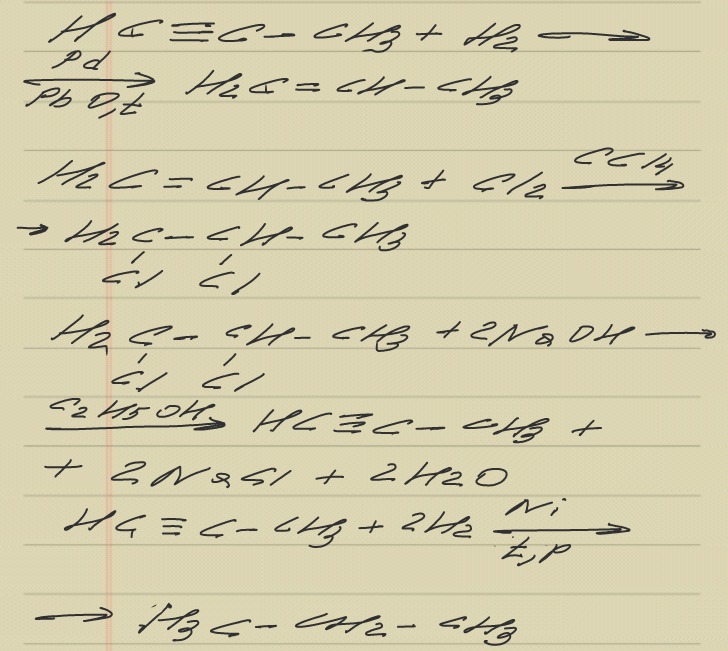 HC≡C–CH3 + H2 →
Pd
→ H2C=CH–CH3
Pb O, t
CCl4
H2C=CH–CH3 + Cl2 →
→ H2C–CH–CH3
Cl Cl
H2C–CH–CH3 + 2NaOH →
Cl Cl
C2H5OH
→ HC≡C–CH3 +
+ 2NaCl + 2H2O
Ni
HC≡C–CH3 + 2H2 →
t, p
→ H3C–CH2–CH3